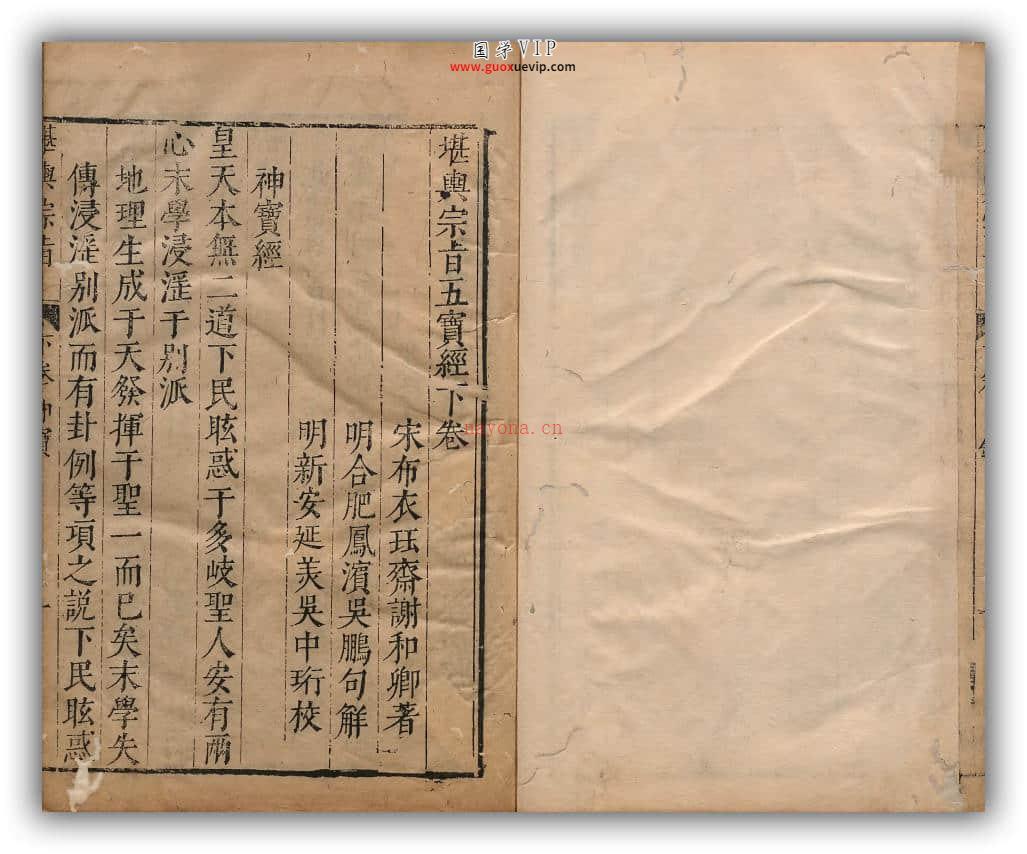 国学VIP
www.guoxuevip.com
堪輿宗旨五寶經下卷
宋布衣玨齋謝和卿著
明合肥鳳濱吳鵬句解
明新安延羙吳中珩校
神寶經
皇天本無二道下民眩惑于多岐聖人安有兩
心末學浸滛于别派
地理生成于天發揮于聖一而已矣末學失
傳浸滛别派而有卦例等項之說下民眩惑
堪輿宗旨 下卷 神寶 一
nayona.cn